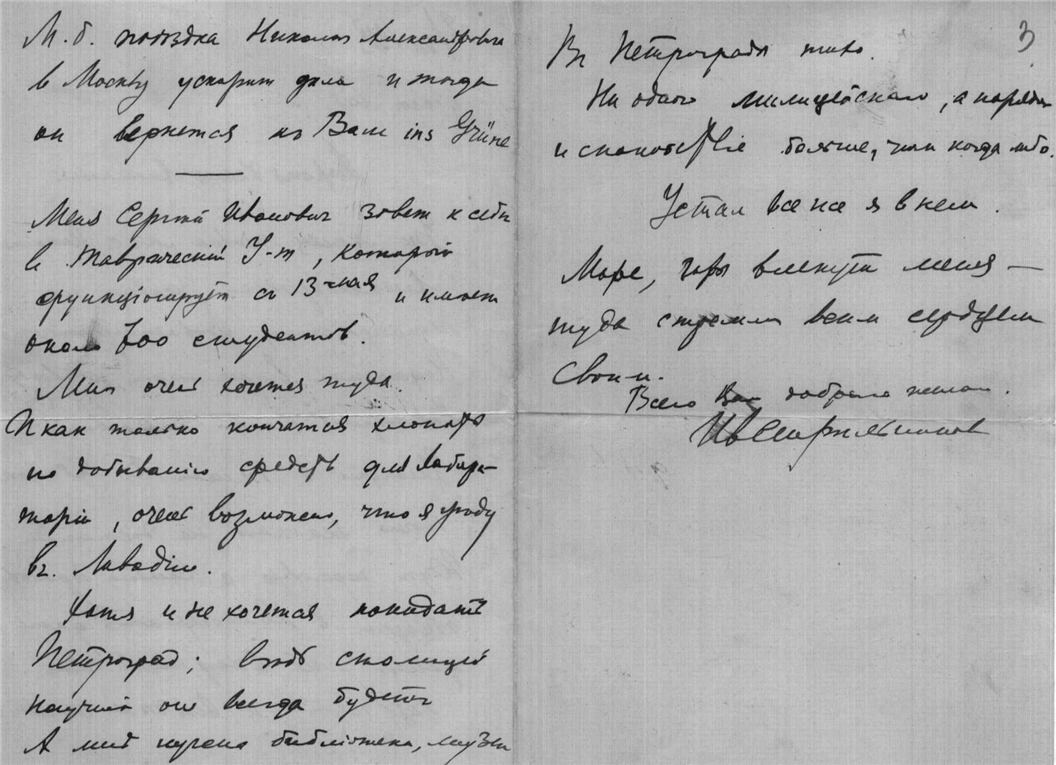 М. б. поѣздка Николая Александровича
в Москву ускорит дѣла и тогда
он вернется къ Вам ins Grüne
Меня Сергѣй Иванович зовет к себѣ
в Таврический У-т, который
функціонирует съ 13 мая и имѣет
около 600 студентов.
Мнѣ очень хочется туда.
И как только кончатся хлопоты
по добыванію средств для лабора-
торіи, очень возможно, что я уѣду
въ Ливадію.
Хотя и не хочется покидать
Петроград; вѣдь столицей
научной он всегда будетъ
А мнѣ нужна библіотека, музеи
3
Въ Петроградѣ тихо.
Ни одного милицейскаго, а порядка
и спокойствіе больше, чѣм когда либо.
Устал все же я в нем.
Море, горы влекутъ меня —
туда стремлюсь всѣм сердцем
своим.
Всего Вам добраго желаю.